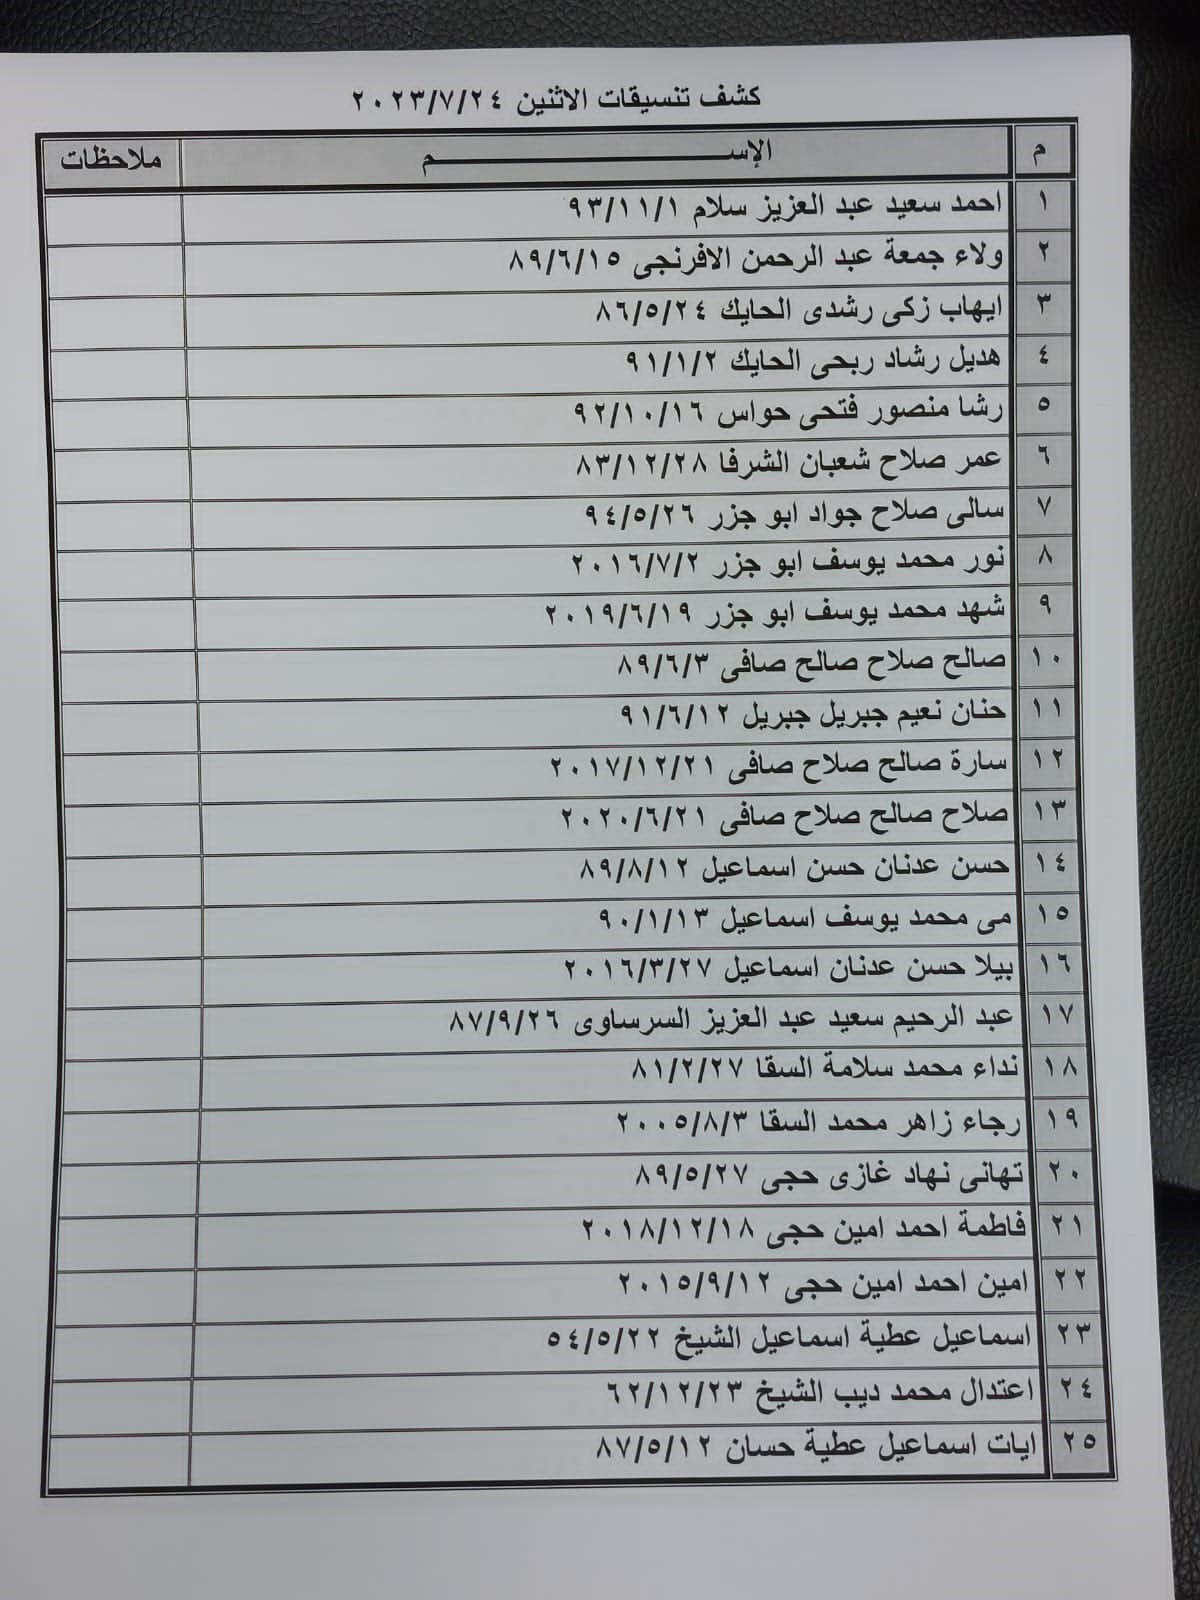 كشف تنسيقات الاثنين ٢٠٢٣/٧/٢٤
م الإســـــــم ملاحظات
١ احمد سعيد عبد العزيز سلام ٩٣/١١/١
٢ ولاء جمعة عبد الرحمن الافرنجى ٨٩/٦/١٥
٣ ايهاب زكى رشدى الحايك ٨٦/٥/٢٤
٤ هديل رشاد ربحى الحايك ٩١/١/٢
٥ رشا منصور فتحى حواس ٩٢/١٠/١٦
٦ عمر صلاح شعبان الشرفا ٨٣/١٢/٢٨
٧ سالى صلاح جواد ابو جزر ٩٤/٥/٢٦
٨ نور محمد يوسف ابو جزر ٢٠١٦/٧/٢
٩ شهد محمد يوسف ابو جزر ٢٠١٩/٦/١٩
١٠ صالح صلاح صالح صافى ٨٩/٦/٣
١١ حنان نعيم جبريل جبريل ٩١/٦/١٢
١٢ سارة صالح صلاح صافى ٢٠١٧/١٢/٢١
١٣ صلاح صالح صلاح صافى ٢٠٢٠/٦/٢١
١٤ حسن عدنان حسن اسماعيل ٨٩/٨/١٢
١٥ مى محمد يوسف اسماعيل ٩٠/١/١٣
١٦ بيلا حسن عدنان اسماعيل ٢٠١٦/٣/٢٧
١٧ عبد الرحيم سعيد عبد العزيز السرساوى ٨٧/٩/٢٦
١٨ نداء محمد سلامة السقا ٨١/٢/٢٧
١٩ رجاء زاهر محمد السقا ٢٠٠٥/٨/٣
٢٠ تهانى نهاد غازى حجى ٨٩/٥/٢٧
٢١ فاطمة احمد امين حجى ٢٠١٨/١٢/١٨
٢٢ امين احمد امين حجى ٢٠١٥/٩/١٢
٢٣ اسماعيل عطية اسماعيل الشيخ ٥٤/٥/٢٢
٢٤ اعتدال محمد ديب الشيخ ٦٢/١٢/٢٣
٢٥ ايات اسماعيل عطية حسان ٨٧/٥/١٢